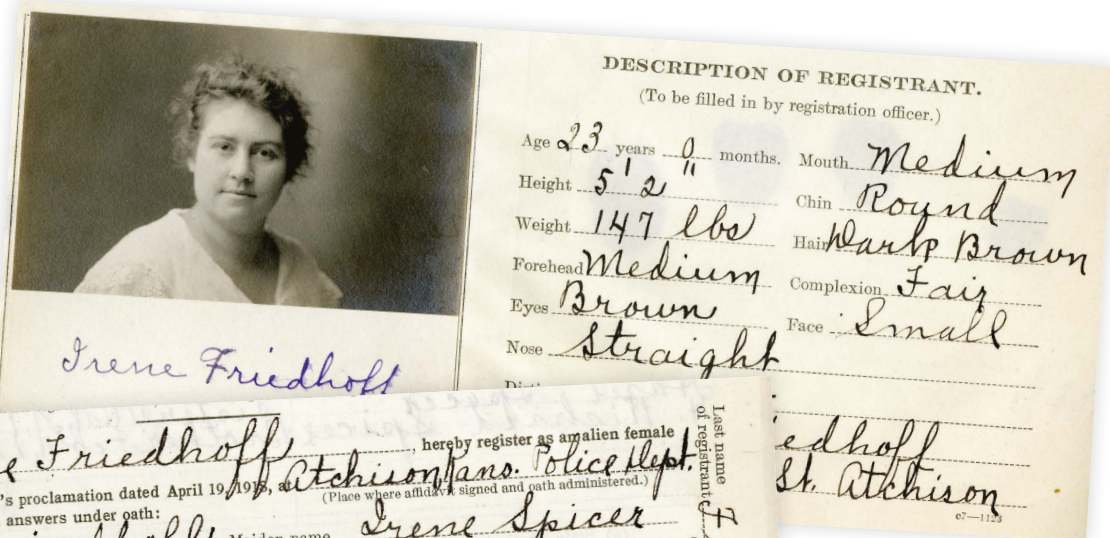 DESCRIPTION OF REGISTRANT.
(To be filled in by registration officer.)
Age 23 years 0 months.
Height 5' 2"
Weight 147 lbs
Forehead Medium
Eyes Brown
Nose Straight
Mouth Medium
Chin Round
Hair Dark Brown
Complexion Fair
Face Small
edhoff
St. Atchison
c7—1123
Irene Friedhoff
e Friedhoff hereby register as an alien female
's proclamation dated April 19, 1918, at Atchison Kans. Police Dept.
(Place where affidavit signed and oath administered.)
answers under oath:
Maiden name Irene Spicer
Last name
of registrant